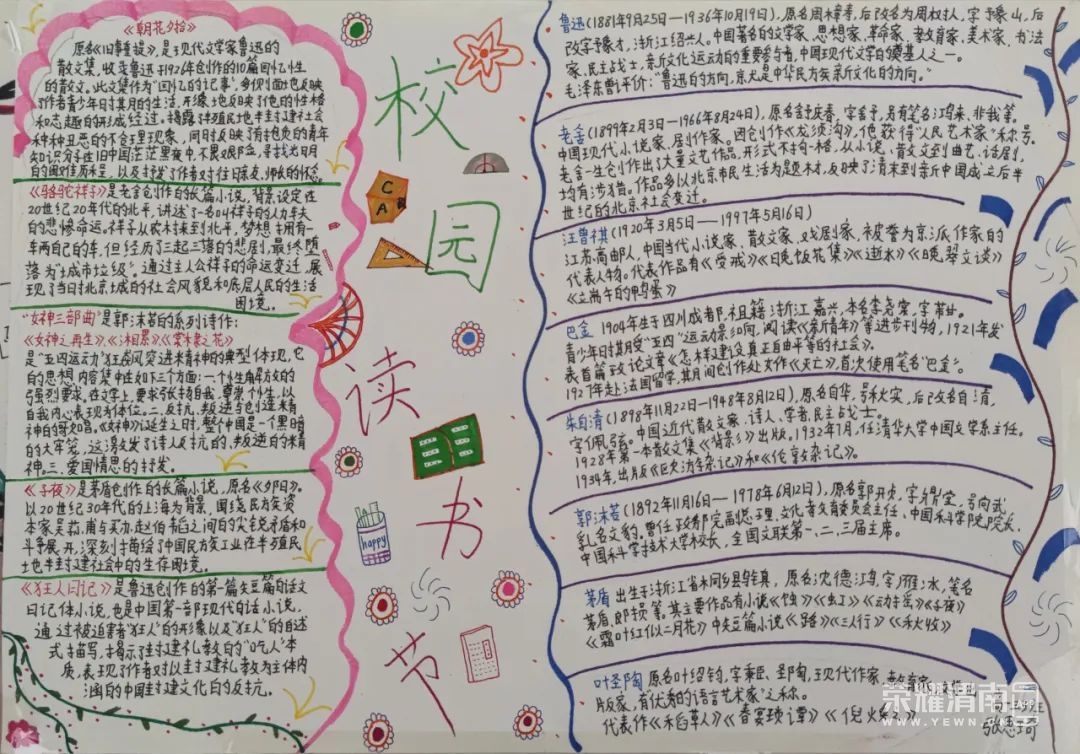 《朝花夕拾》
原名《旧事重提》，是现代文学家鲁迅的
散文集，收录鲁迅于1926年创作的10篇回忆性
的散文。此文集作为"回忆的记事"，多侧面地反映
了作者青少年时期的生活，形像地反映了他的性格
和志趣的形成经过。揭露了半殖民地半封建社会
种种丑恶的不合理现象，同时反映了有抱负的青年
知识分子在旧中国茫茫黑夜中，不畏艰险，寻找光明
的困难历程，以及抒发了作者对往日亲友，师长的怀念
《骆驼祥子》是老舍创作的长篇小说，背景设定在
20世纪20年代的北平，讲述了一名叫祥子的人力车夫
的悲惨命运。祥子从农村来到北平，梦想拥有一
车两自己的车，但经历了三起三落的悲剧，最终堕
落为"城市垃圾"。通过主人公祥子的命运变迁，展
现了当时北京城的社会风貌和底层人民的生活
困境。
"女神三部曲"是郭沫若的系列诗作：
《女神之再生》《湘累》《棠棣之花》
是"五四运动"狂飙突进精神的典型体现，它
的思想内容集中在如下三个方面：一个性解放的
强烈要求，在文学上，要求张扬自我，尊崇个性，以
自我内心表现为体位。二、反抗、叛逆与创造精
神的哥欠唱。《女神》诞生之时，整个中国是一个黑暗
的大牢笼，这激发了诗人反抗的、叛逆的精
神。三、爱国情思的抒发。
《子夜》是茅盾创作的长篇小说，原名《夕阳》。
以20世纪30年代的上海为背景，围绕民族资
本家吴荪甫与买办赵伯韬之间的尖锐矛盾和
斗争展开，深刻描绘了中国民族工业在半殖民
地半封建社会中的生存困境。
《狂人日记》是鲁迅创作的第一篇短篇白话文
日记体小说，也是中国第一部现代白话小说，
通过被迫害者"狂人"的形象以及"狂人"的自述
式描写，揭示了封建礼教的"吃人"本
质，表现了作者对以封建礼教为主体内
涵的中国封建文化的反抗。
校
园
读
书
节
C
A
happy
鲁迅(1881年9月25日—1936年10月19日)，原名周樟寿，后改名为周树人，字豫山，后
改字豫才，浙江绍兴人。中国著名的文学家、思想家、革命家、教育家、美术家、书法
家、民主战士，新文化运动的重要参与者，中国现代文学的奠基人之一。
毛泽东曾平价："鲁迅的方向，就是中华民族新文化的方向。"
老舍(1899年2月3日—1966年8月24日)，原名舒庆春，字舍予，另有笔名鸿来、非我等。
中国现代小说家、剧作家。因创作《龙须沟》，他获得"人民艺术家"称号。
老舍一生创作出了大量文艺作品，形式不拘一格，从小说、散文文到曲艺、话剧，
均有涉猎。作品多以北京市民生活为题材，反映了清末到新中国成立后半
世纪的北京社会变迁。
汪曾祺(1920年3月5日—1997年5月16日)
江苏高邮人，中国当代小说家、散文家、戏剧家，被誉为京派作家的
代表人物。代表作品有《受戒》《晚饭花集》《逝水》《晚翠文谈》
《端午的鸭蛋》
巴金 1904年生于四川成都，祖籍浙江嘉兴，本名李尧棠，字芾甘。
青少年时期受"五四"运动影响，阅读《新青年》等进步刊物，1921年发
表首篇政论文章《怎样建设真正自由平等的社会》。
1927年赴法国留学，其间创作处女作《灭亡》，首次使用笔名"巴金"。
朱自清(1898年11月22日—1948年8月12日)，原名自华，号秋实，后改名自清，
字佩弦。中国近代散文家、诗人、学者、民主战士。
1928年第一本散文集《背影》出版，1932年7月，任清华大学中国文学系主任。
1934年，出版《欧游杂记》和《伦敦杂记》。
郭沫若(1892年11月16日—1978年6月12日)，原名郭开贞，字鼎堂，号尚武，
乳名文豹。曾任政务院副总理、文化教育委员会主任、中国科学院院长、
中国科学技术大学校长，全国文联第一、二、三届主席。
茅盾 出生于浙江省桐乡县乌镇，原名沈德鸿，字雁冰，笔名
茅盾、郎损等。其主要作品有小说《蚀》《虹》《动摇》《子夜》
《霜叶红似二月花》中短篇小说《路》《三人行》《秋收》
叶圣陶 原名叶绍钧，字秉臣、圣陶，现代作家，教育家
版家，有优秀的语言艺术家之称。
代表作《稻草人》《春宴琐谭》《倪焕
荣耀渭南网
WWW.YEWN.